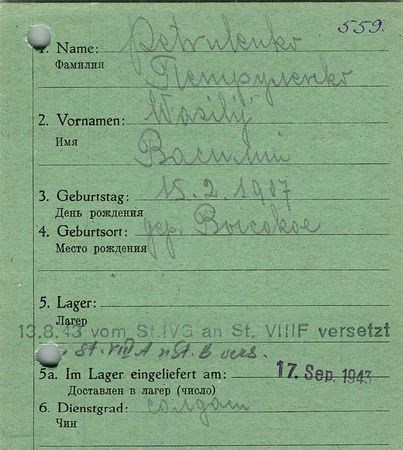 559.
1. Name: Petrulenko
Фамилия Петруленко
2. Vornamen: Wasilij
Имя Василий
3. Geburtstag: 15.2.1907
День рождения
4. Geburtsort: дер. Высокое
Место рождения
5. Lager:
Лагерь
13.8.43 vom St.IVG an St. VIIIF versetzt
St. VIII A n St. B vers.
5a. Im Lager eingeliefert am: 17. Sep. 1943
Доставлен в лагерь (число)
6. Dienstgrad: солдат
Чин